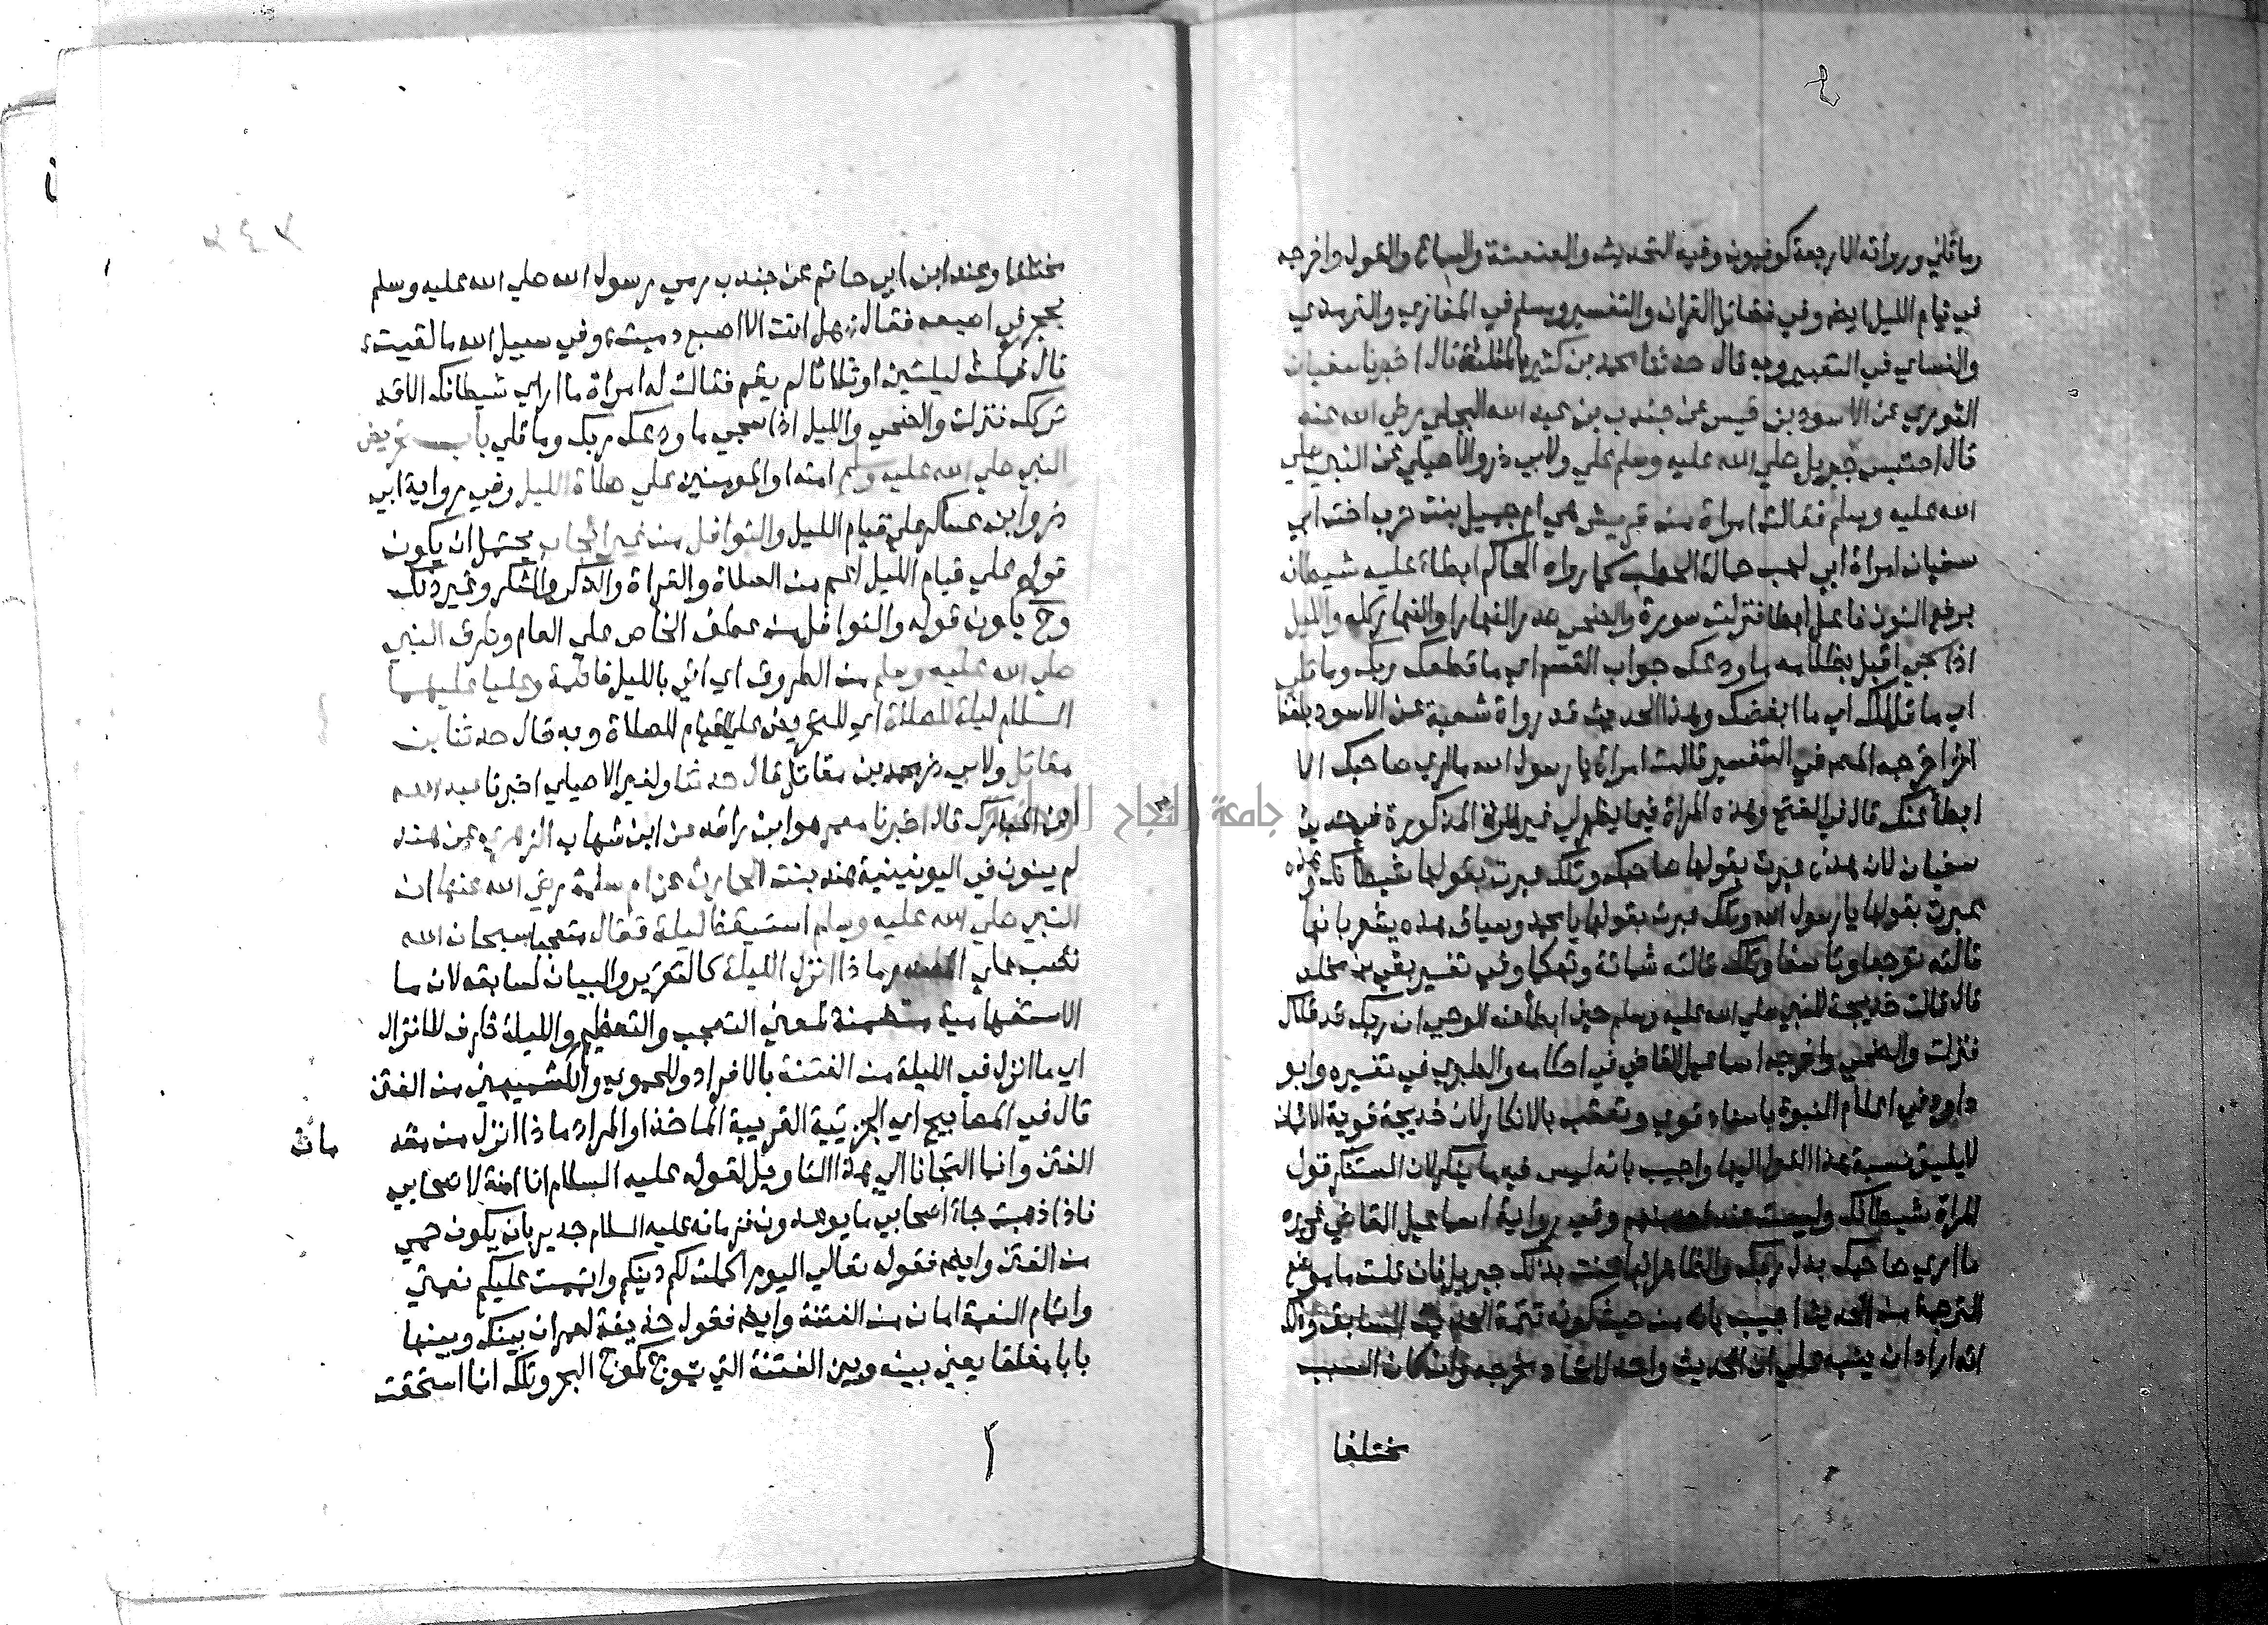 وما قلي ورواته الاربعة كوفيون وفيه التحديث والعنعنة والسماع والقول واخرجه
في قيام الليل ايضا وفي فضائل القران والتفسير ومسلم في المغازي والترمذي
والنساي في التفسير وبه قال حدثنا محمد بن كثير بالمثلثة قال اخبرنا سفيان
الثوري عن الاسود بن قيس عن جندب بن عبد الله البجلي رضي الله عنه
قال احتبس جبريل صلي الله عليه وسلم علي ولابي ذر والاصيلي عن النبي صلي
الله عليه وسلم فقالت امراة من قريش هي ام جميل بنت حرب اخت ابي
سفيان امراة ابي لهب حمالة الحطب كما رواه الحاكم ابطاء عليه شيطانه
برفع النون فاعل ابطا فنزلت سورة والضحي صدر النهار او النهار كله والليل
اذا سجي اقبل بظلامه ما ودعك جواب القسم اي ما قطعك ربك وما قلي
اي ما قلاك اي ما ابغضك وهذا الحديث قد رواه شعبة عن الاسود بلفظ
اخر اخرجه المص في التفسير قالت امراة يا رسول الله ما اري صاحبك الا
ابطا عنك قال في الفتح وهذه المراة فيما يظهر لي غير المراة المذكورة في حديث
سفيان لان هذه عبرت بقولها صاحبك وتلك عبرت بقولها شيطانك وهذه
عبرت بقولها يا رسول الله وتلك عبرت بقولها يا محمد وسياق هذه يشعر بانها
قالته توجعا وتاسفا وتلك قالته شماتة وتهكما وفي تفسير بقي بن مخلد
قال قالت خديجة للنبي صلي الله عليه وسلم حين ابطا عنه الوحي ان ربك قد قلاك
فنزلت والضحي واخرجه اسماعيل القاضي في احكامه والطبري في تفسيره وابو
داود في اعلام النبوة باسناد قوي وتعقب بالانكار لان خديجة قوية الايمان
لا يليق نسبة هذا القول اليها واجيب بانه ليس فيه ما ينكر لان المستنكر قول
المراة شيطانك وليست عند احد منهم وفي رواية اسماعيل القاضي وغيره
ما اري صاحبك بدل ربك والظاهر انها عنت بذلك جبريل فان قلت ما موضع
الترجمة من الحديث اجيب بانه من حيث كونه تتمة الحديث السابق وذلك
انه اراد ان ينبه علي ان الحديث واحد لاتحاد مخرجه وان كان السبب
مختلفا
مختلفا وعند ابن ابي حاتم عن جندب رمي رسول الله صلي الله عليه وسلم
بحجر في اصبعه فقال هل انت الا اصبع دميت وفي سبيل الله ما لقيت
قال فمكث ليلتين او ثلاثا لم يقم فقالت له امراة ما اراي شيطانك الا قد
تركك فنزلت والضحي والليل اذا سجي ما ودعك ربك وما قلي باب تحريض
النبي صلي الله عليه وسلم امته او المومنين علي صلاة الليل وفي رواية ابي
ذر وابن عساكر علي قيام الليل والنوافل من غير ايجاب يحتمل ان يكون
قوله علي قيام الليل اعم من الصلاة والقراة والذكر والشكر وغير ذلك
وح يكون قوله والنوافل من عطف الخاص علي العام وطرق النبي
صلي الله عليه وسلم من الطروق اي اتي بالليل فاطمة وعليا عليهما
السلام ليلة للصلاة اي للتحريض علي القيام للصلاة وبه قال حدثنا بن
مقاتل ولابي ذر محمد بن مقاتل قال حدثنا ولغير الاصيلي اخبرنا عبد الله
ابن المبارك قال اخبرنا معمر هو ابن راشد عن ابن شهاب الزهري عن هند
لم ينون في اليونينية هند بنت الحارث عن ام سلمة رضي الله عنها ان
النبي صلي الله عليه وسلم استيقظ ليلة فقال متعجبا سبحان الله
نصب علي المصدر ما ذا انزل الليلة كالتقرير والبيان لسابقه لان ما
الاستفهامية متضمنة لمعني التعجب والتعظيم والليلة ظرف للانزال
اي ما انزل في الليلة من الفتنة بالافراد وللحموي والكشميهني من الفتن
قال في المصابيح اي الجزئية القريبة الماخذ او المراد ما ذا انزل من مقد مات
الفتن وانما التجانا الي هذا التاويل لقوله عليه السلام انا امنة لاصحابي
فاذا ذهبت جاء اصحابي ما يوعدون فزمانه عليه السلام جدير بان يكون حمي
من الفتن وايضا فقوله تعالي اليوم اكملت لكم دينكم واتممت عليكم نعمتي
واتمام النعمة امان من الفتنة وايضا فقول حذيفة لعمر ان بينك وبينها
بابا مغلقا يعني بينه وبين الفتنة التي تموج كموج البحر وتلك انما استحقت
جامعة النجاح الوطنية